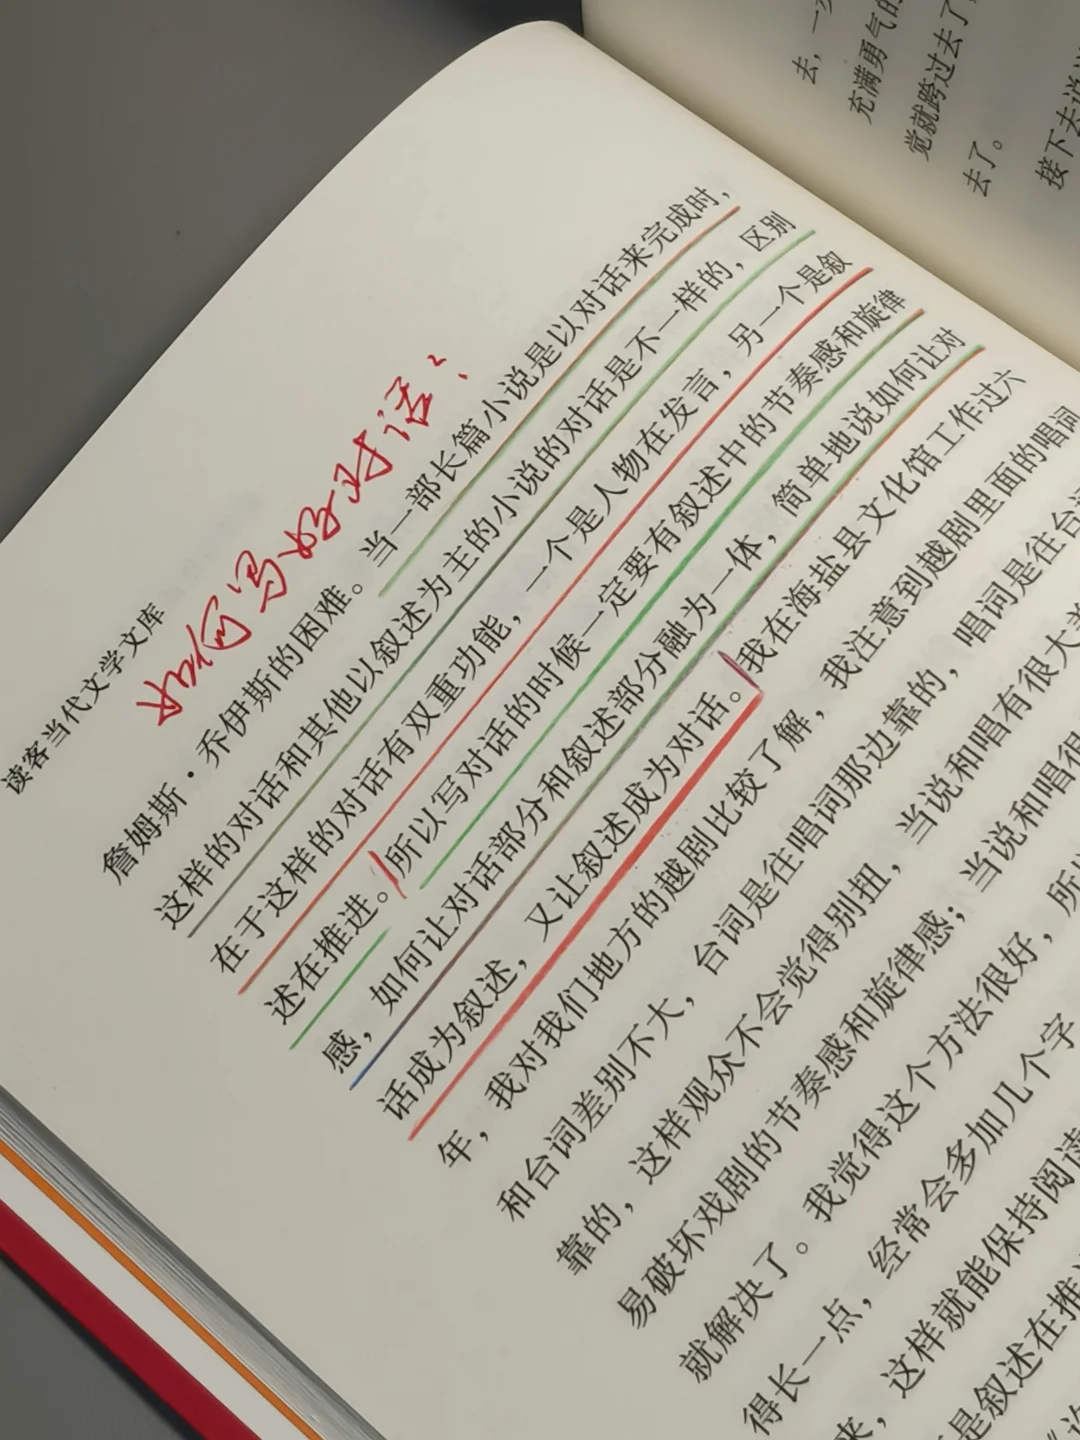 去，一
充满勇气的
觉就跨过去了，
去了。
接下去说
读客当代文学文库
如何写好对话？
詹姆斯·乔伊斯的困难。当一部长篇小说是以对话来完成时，
这样的对话和其他以叙述为主的小说的对话是不一样的，区别
在于这样的对话有双重功能，一个是人物在发言，另一个是叙
述在推进。所以写对话的时候一定要有叙述中的节奏感和旋律
感，如何让对话部分和叙述部分融为一体，简单地说如何让对
话成为叙述，又让叙述成为对话。我在海盐县文化馆工作过六
年，我对我们地方的越剧比较了解，我注意到越剧里面的唱词
和台词差别不大，台词是往唱词那边靠的，唱词是往台词
靠的，这样观众不会觉得别扭，当说和唱有很大差
易破坏戏剧的节奏感和旋律感；当说和唱很
就解决了。我觉得这个方法很好，所以
得长一点，经常会多加几个字
来，这样就能保持阅读
是叙述在推进